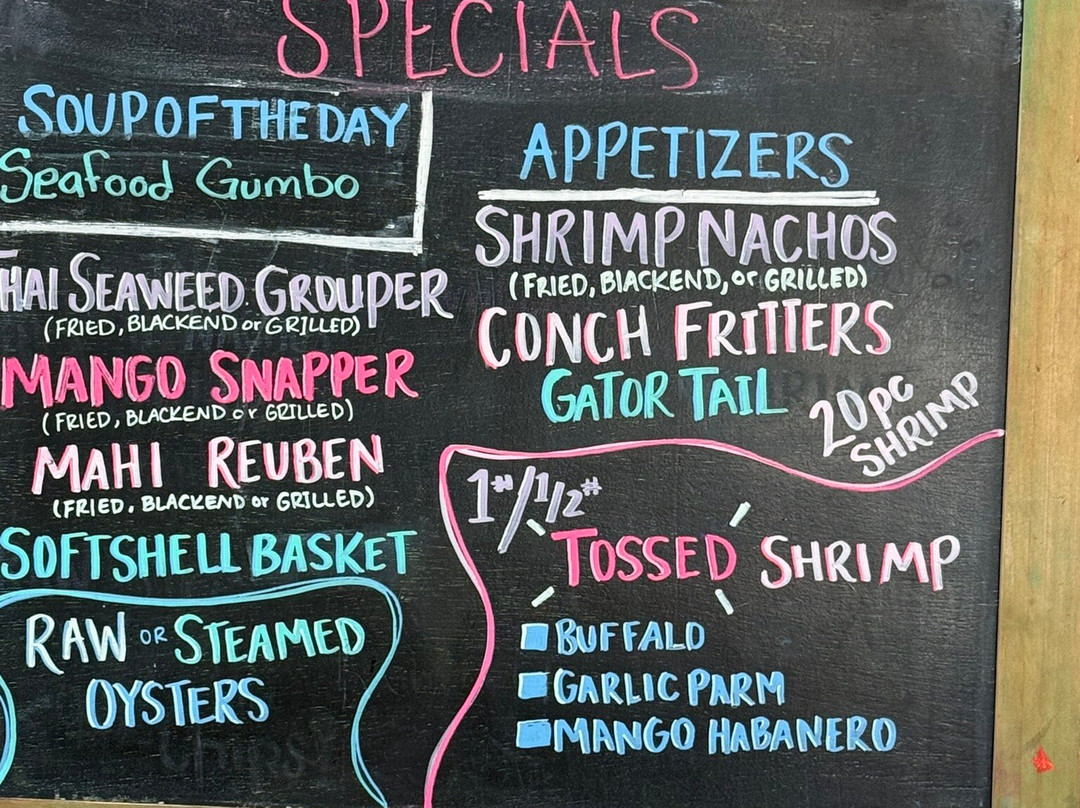 SPECIALS
SOUP OF THE DAY
Seafood Gumbo
THAI SEAWEED GROUPER
(FRIED, BLACKEND or GRILLED)
MANGO SNAPPER
(FRIED, BLACKEND or GRILLED)
MAHI REUBEN
(FRIED, BLACKEND or GRILLED)
SOFTSHELL BASKET
RAW OR STEAMED
OYSTERS
APPETIZERS
SHRIMP NACHOS
(FRIED, BLACKEND, or GRILLED)
CONCH FRITTERS
GATOR TAIL
20 PC
SHRIMP
1#/1/2#
TOSSED SHRIMP
BUFFALO
GARLIC PARM
MANGO HABANERO